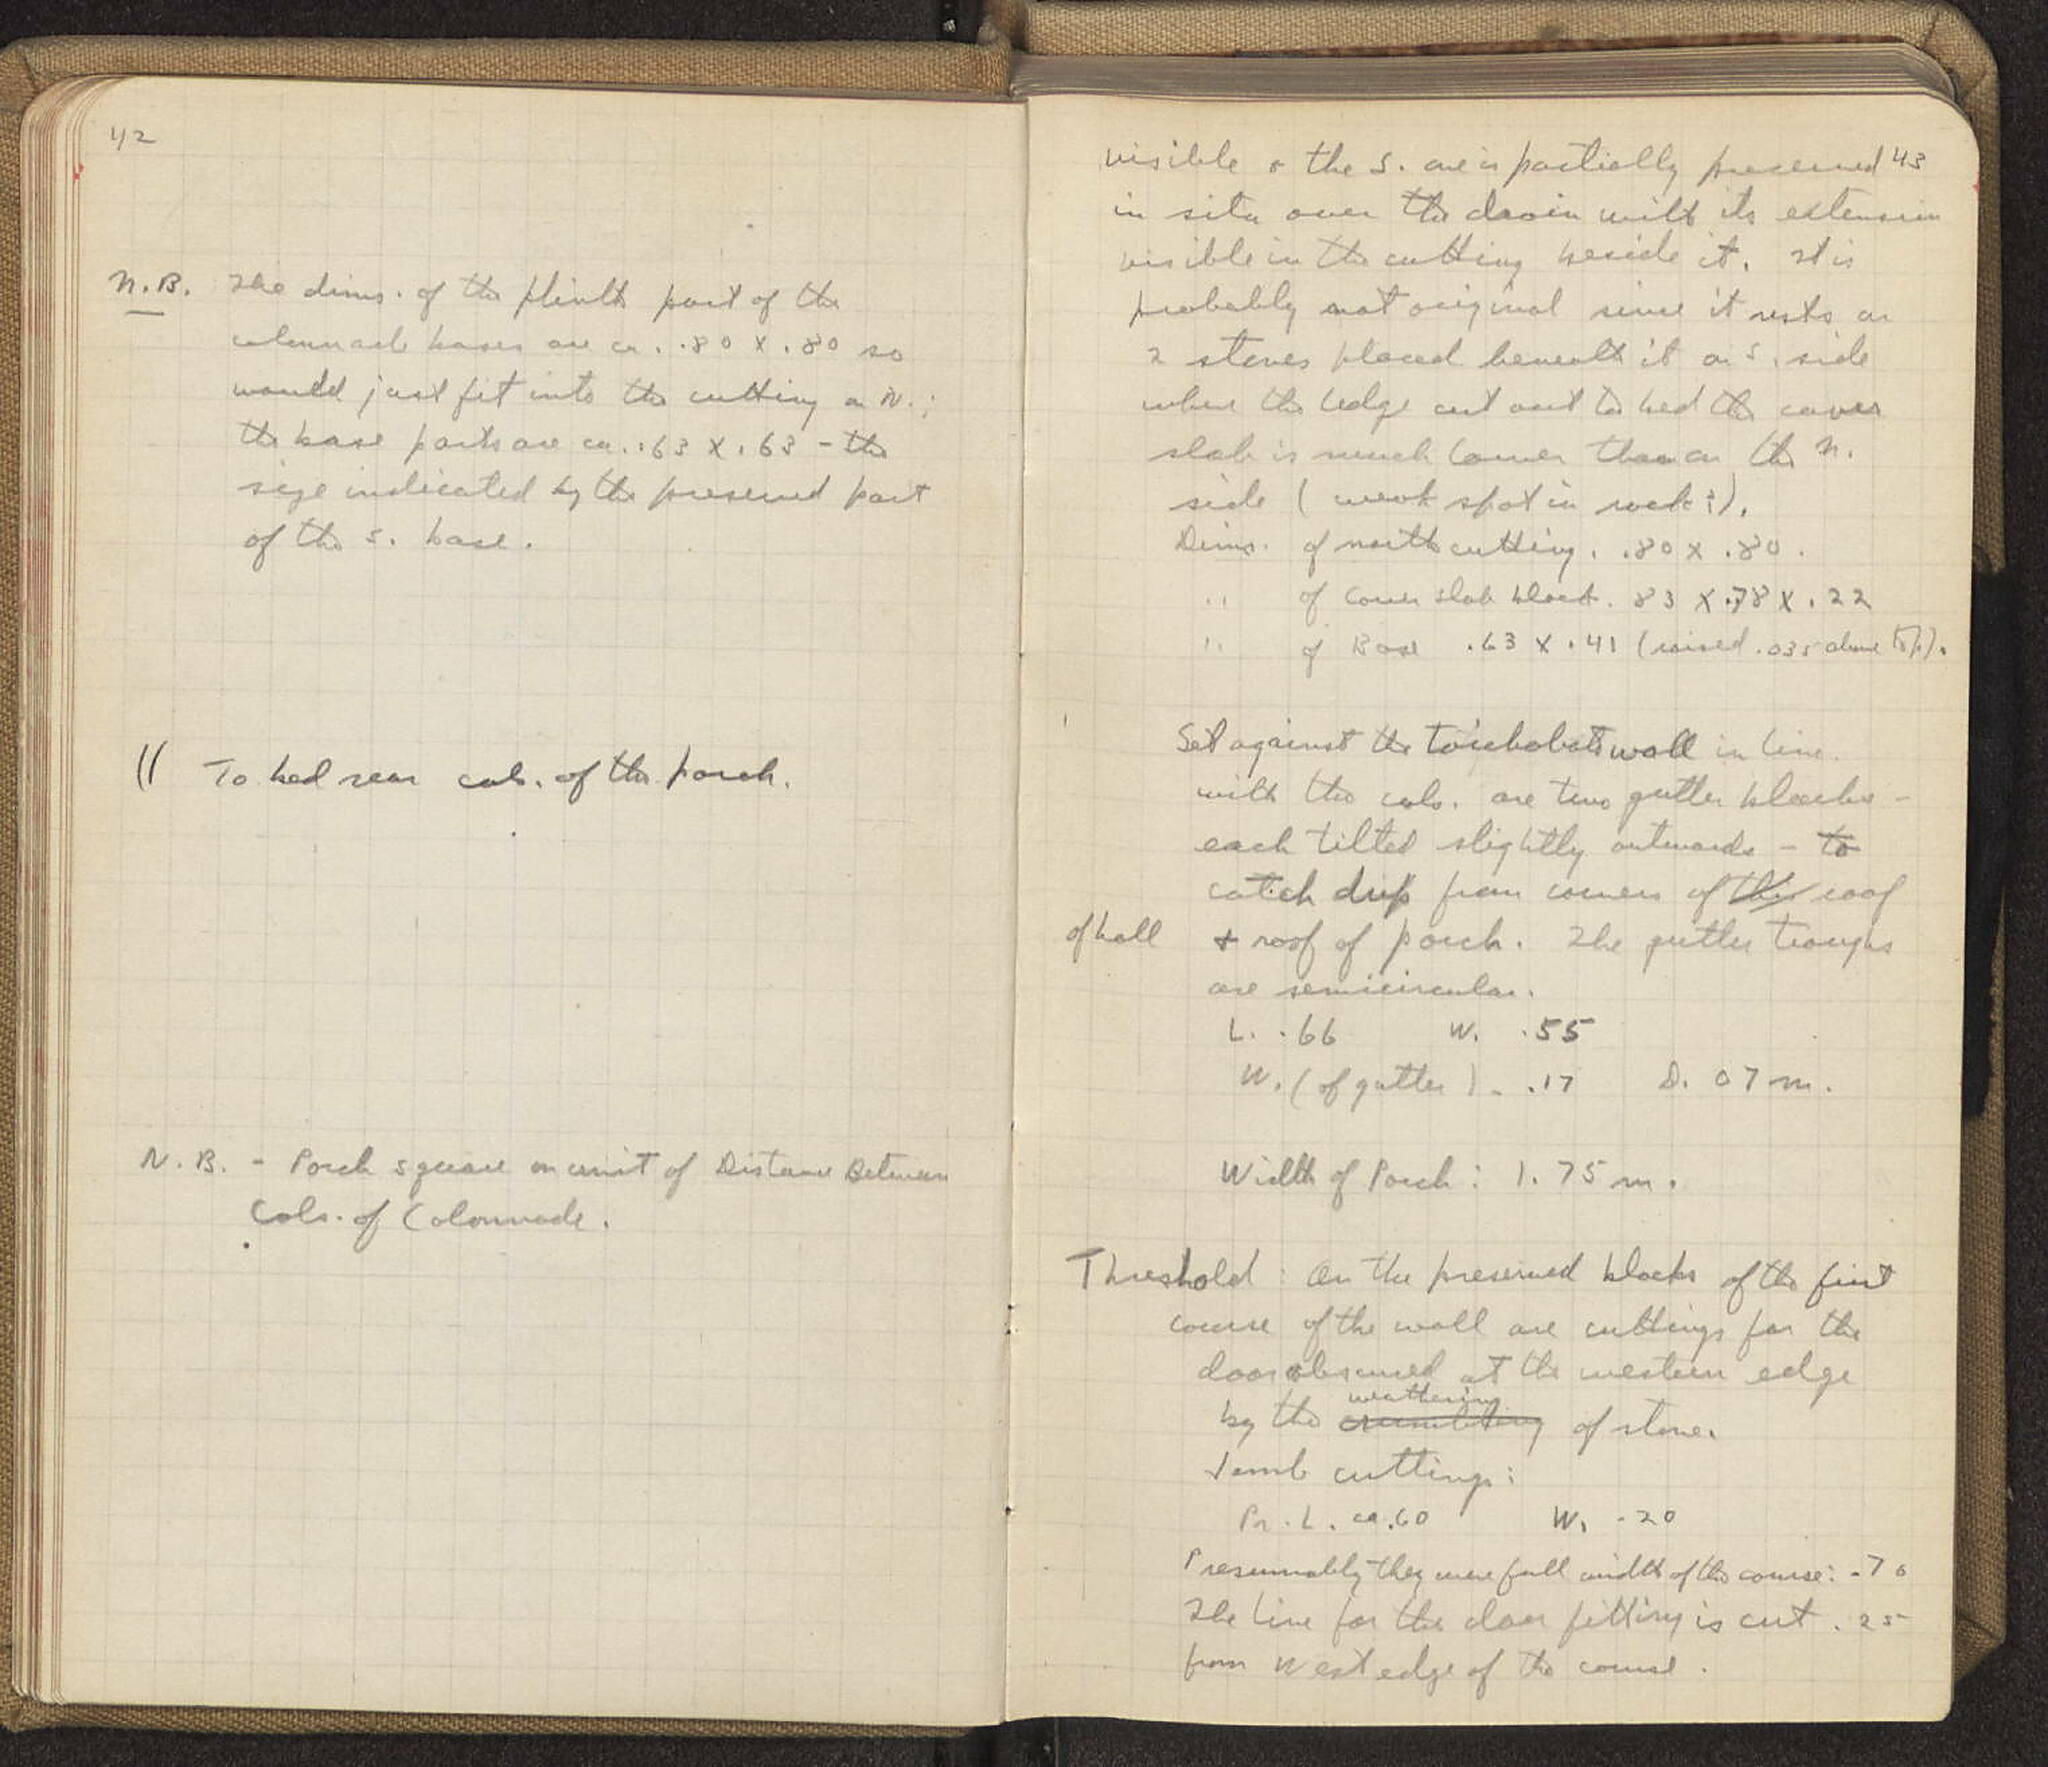 42
N.B. The dims. of the plinth part of the
colonnade bases are ca. .80 x .80 so
would just fit into the cutting on N.;
the base parts are ca. .63 x .63 - the
size indicated by the preserved part
of the S. base.
(( To bed rear cols. of the porch.
N.B. - Porch square on unit of Distance Between
Cols. of Colonnade.
43
visible & the S. one is partially preserved
in situ over the drain with its extension
visible in the cutting beside it. It is
probably not original since it rests on
2 stones placed beneath it on S. side
where the ledge cut out to bed the cover
slab is much lower than on the N.
side (weak spot in rock?).
Dims. of north cutting. .80 x .80.
" of cover slab block. 83 x .78 x .22
" of Base .63 x .41 (raised .035 above top).
Set against the toichobate wall in line
with the cols. are two gutter blocks -
each tilted slightly outwards - to
catch drip from corners of the roof
of hall & roof of porch. The gutter troughs
are semicircular.
L. .66 W. .55
W. (of gutter) - .17 D. 07 m.
Width of Porch: 1.75 m.
Threshold: On the preserved blocks of the first
course of the wall are cuttings for the
door obscured at the western edge
by the crumbling weathering of stone.
Jamb cuttings:
Pr. L. ca .60 W. .20
Presumably they were full width of the course: .76
The line for the door fitting is cut .25
from West edge of the course.